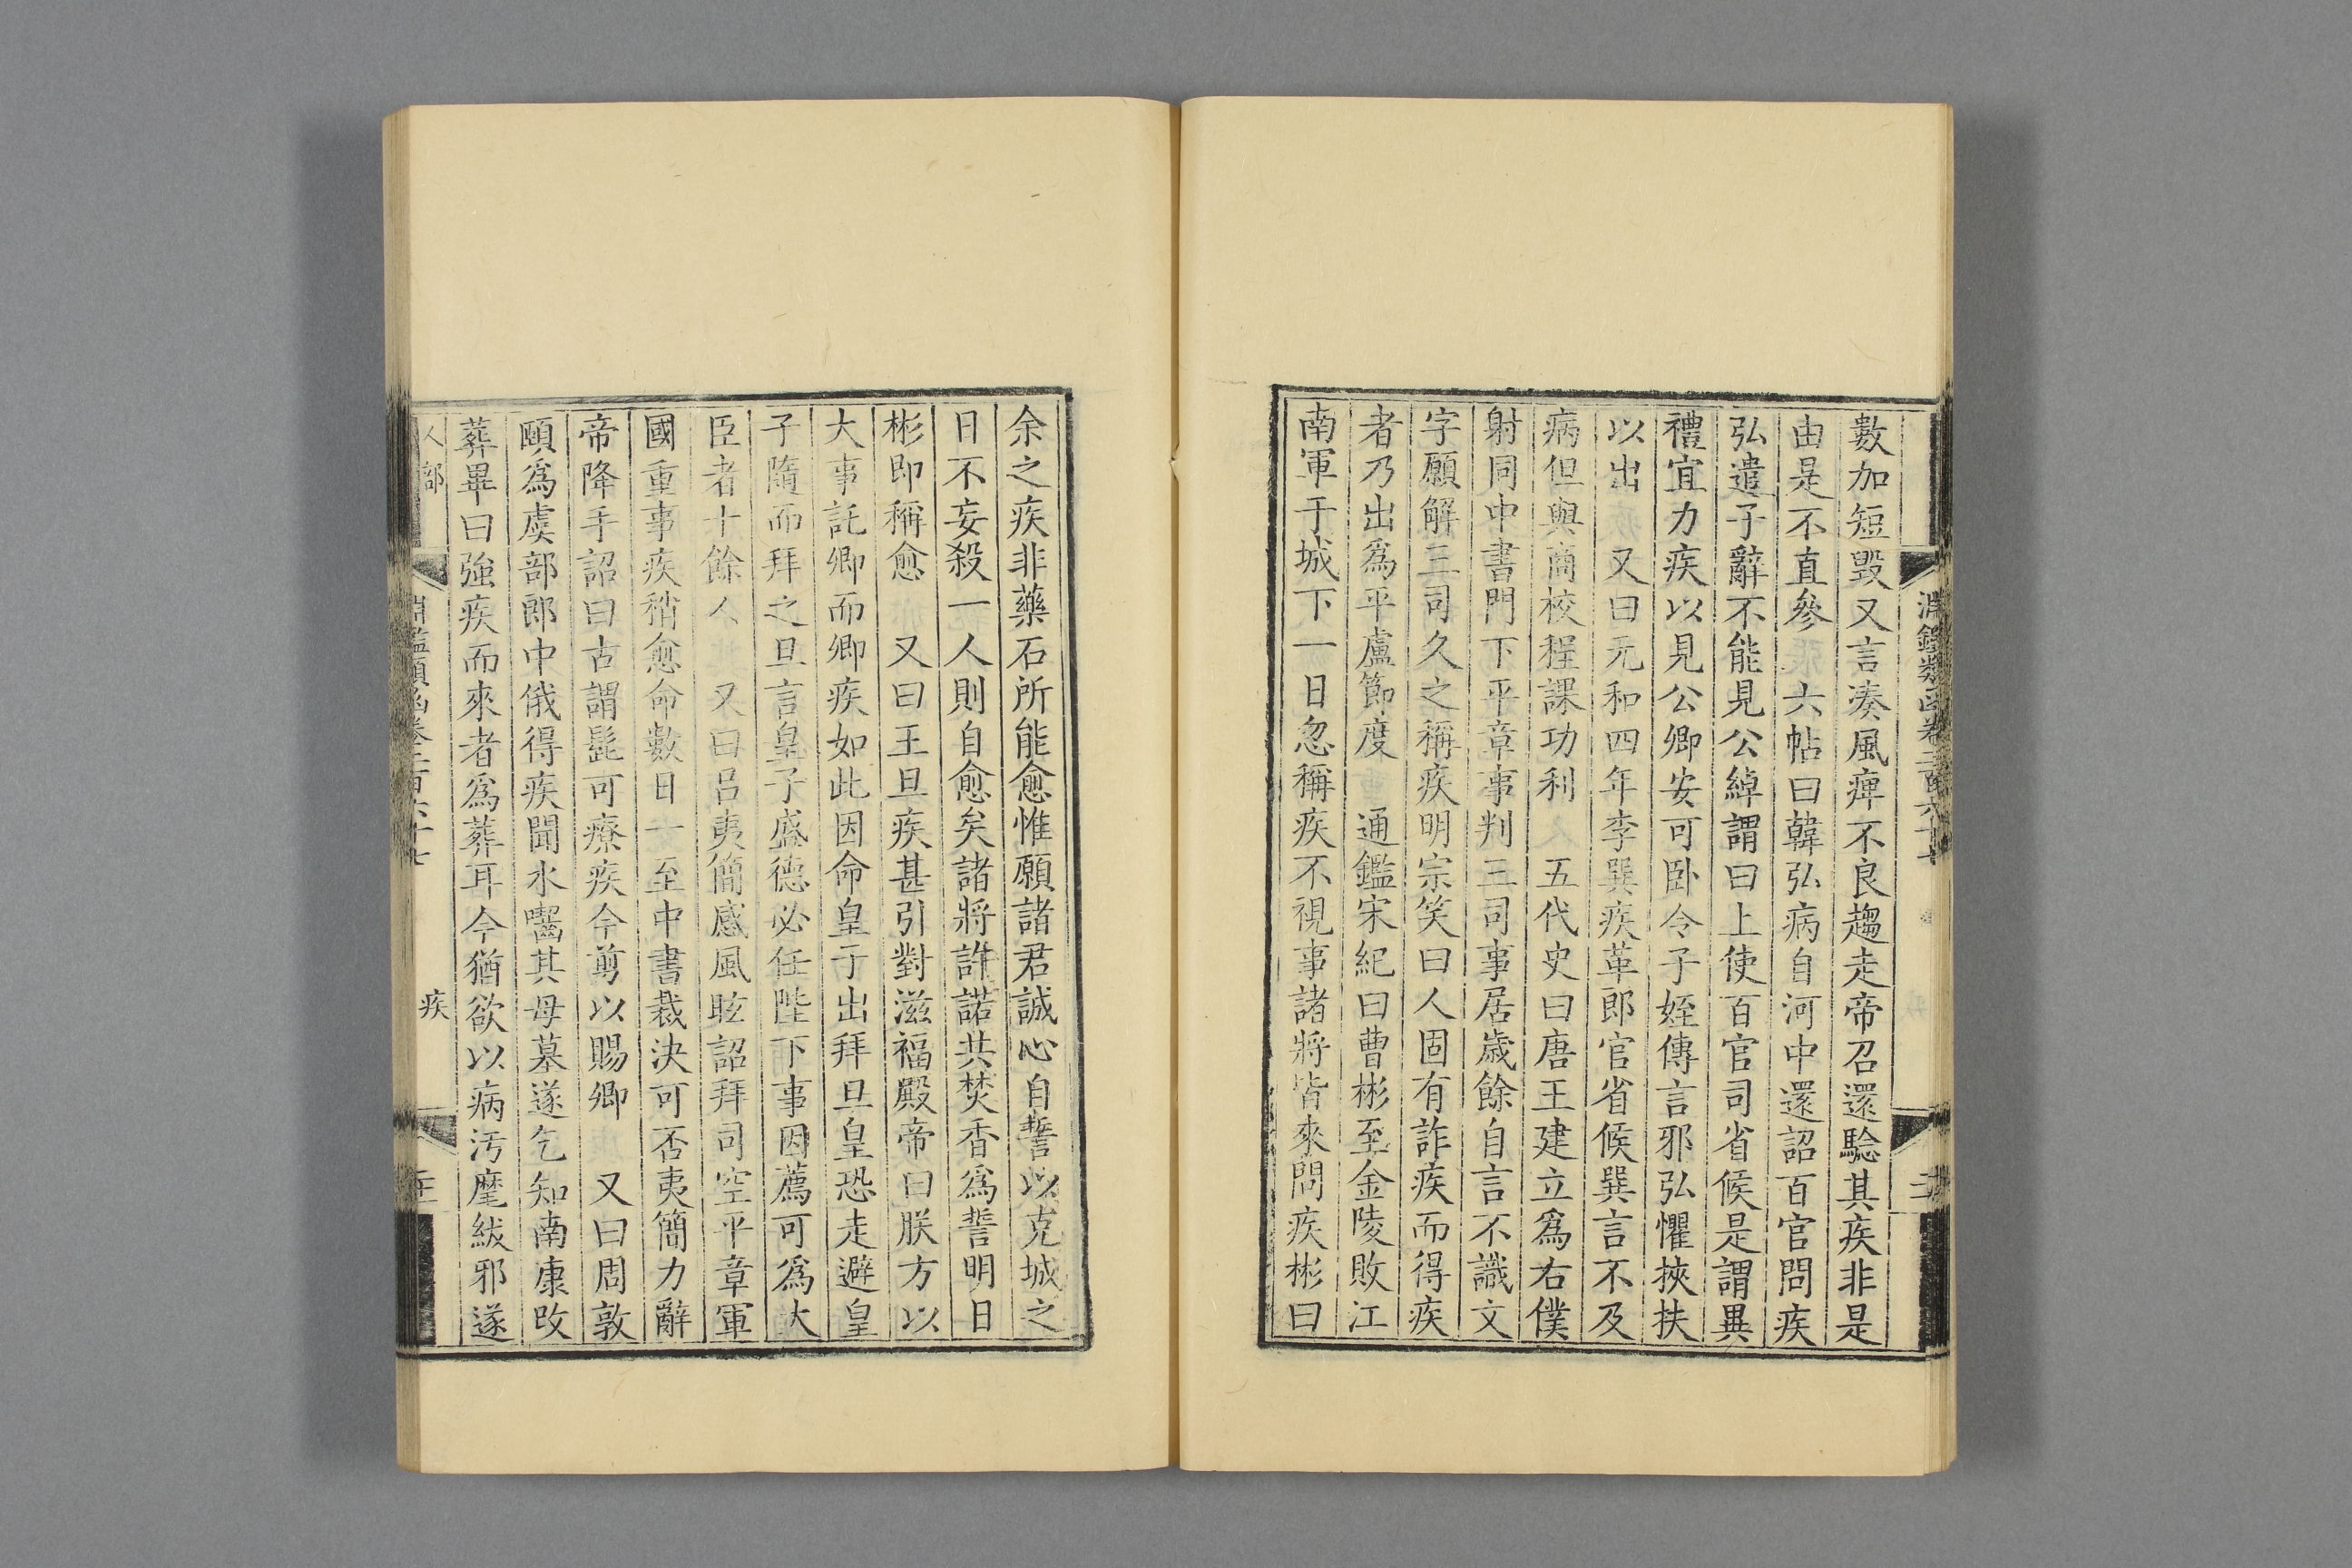 數加短毀又言湊風痺不良趨走帝召還驗其疾非是
由是不直參 六帖曰韓弘病自河中還詔百官問疾
弘遣子辭不能見公綽謂曰上使百官司省候是謂異
禮宜力疾以見公卿安可卧令子姪傳言邪弘懼挾扶
以出 又曰元和四年李巽疾革郎官省候巽言不及
病但與商校程課功利 五代史曰唐王建立為右僕
射同中書門下平章事判三司事居歲餘自言不識文
字願解三司久之稱疾明宗笑曰人固有詐疾而得疾
者乃出為平盧節度 通鑑宋紀曰曹彬至金陵敗江
南軍于城下一日忽稱疾不視事諸將皆來問疾彬曰
余之疾非藥石所能愈惟願諸君誠心自誓以克城之
日不妄殺一人則自愈矣諸將許諾共焚香為誓明日
彬即稱愈 又曰王旦疾甚引對滋福殿帝曰朕方以
大事託卿而卿疾如此因命皇子出拜旦皇恐走避皇
子隨而拜之旦言皇子盛德必任陛下事因薦可為大
臣者十餘人 又曰呂夷簡感風眩詔拜司空平章軍
國重事疾稍愈命數日一至中書裁決可否夷簡力辭
帝降手詔曰古謂髭可療疾今剪以賜卿 又曰周敦
頤為虞部郎中俄得疾聞水囓其母墓遂乞知南康改
葬畢曰強疾而來者為葬耳今猶欲以病汚麾紱邪遂
人部
淵鑑類函卷二百六十七
疾